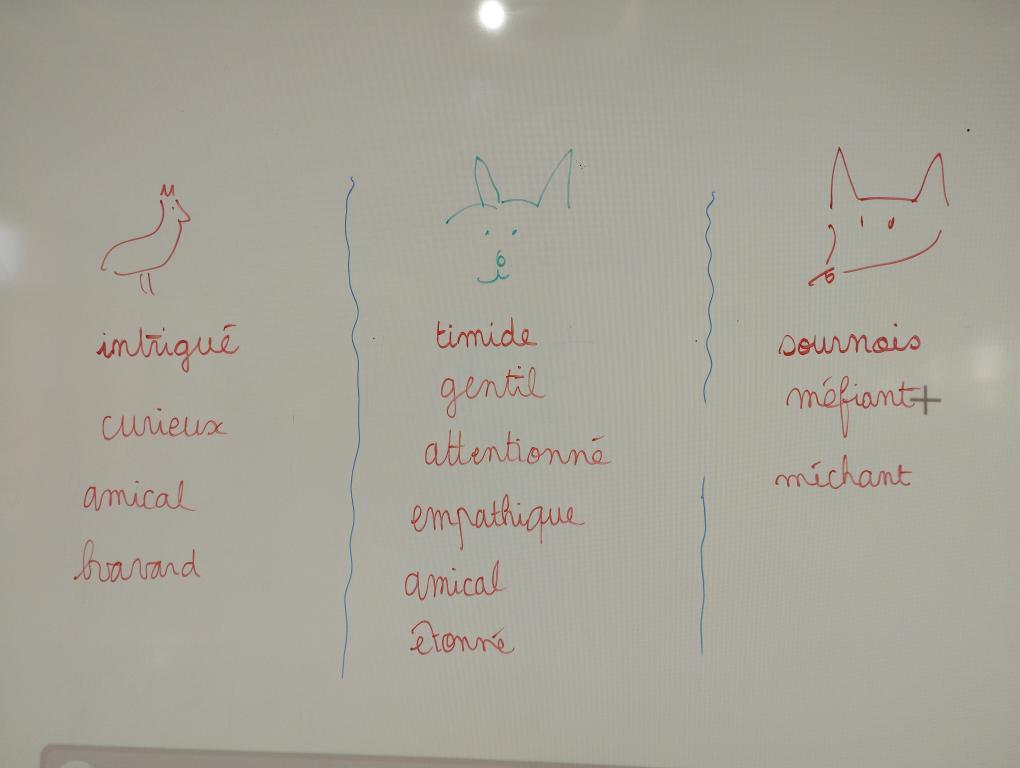 intrigué
curieux
amical
bavard
timide
gentil
attentionné
empathique
amical
étonné
sournois
méfiant
méchant